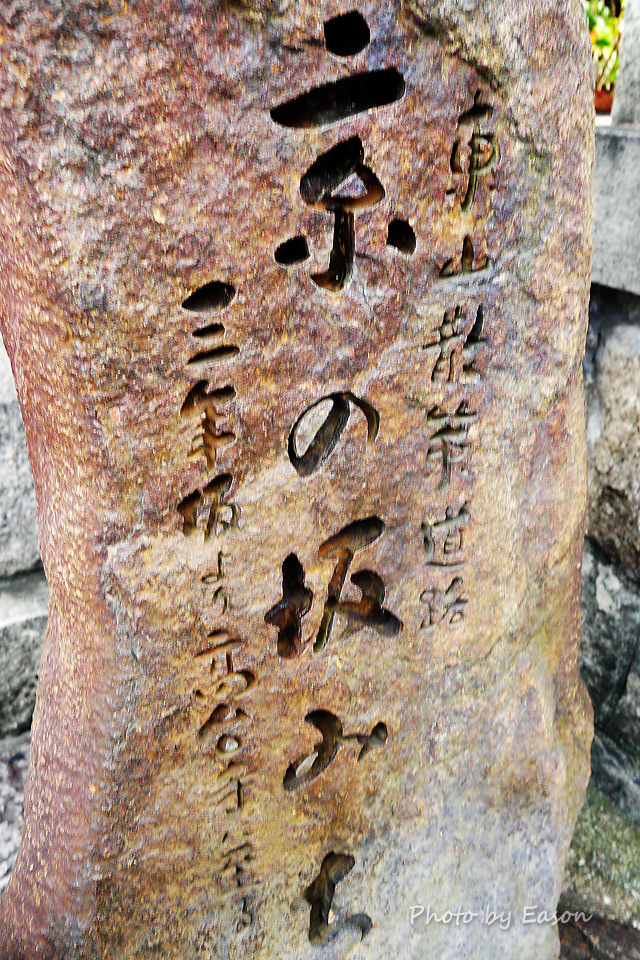 東山散策道路
京の坂みち
二年坂より高台寺に至る
Photo by Eason